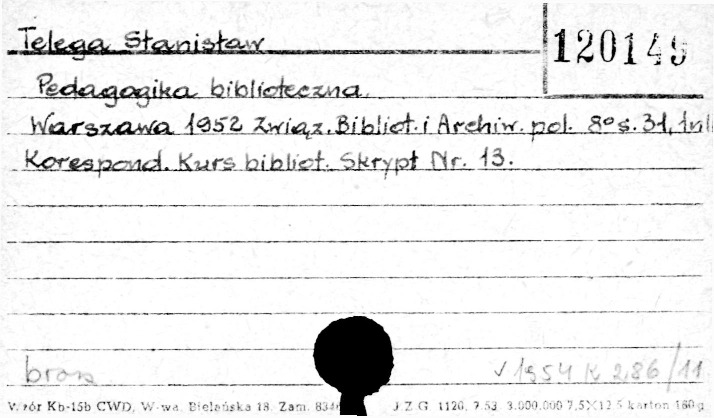 Telega Stanisław
120149
Pedagogika biblioteczna.
Warszawa 1952 Związ. Bibliot. i Archiw. pol. 8° s. 31, 1nl
Korespond. Kurs bibliot. Skrypt Nr. 13.
brosz
√ 1954 K 286/11
Wzór Kb-15b CWD, W-wa, Bielańska 18. Zam. 834 J.Z.G. 1120. 7.53. 3.000.000 7,5X12,5 karton 160g